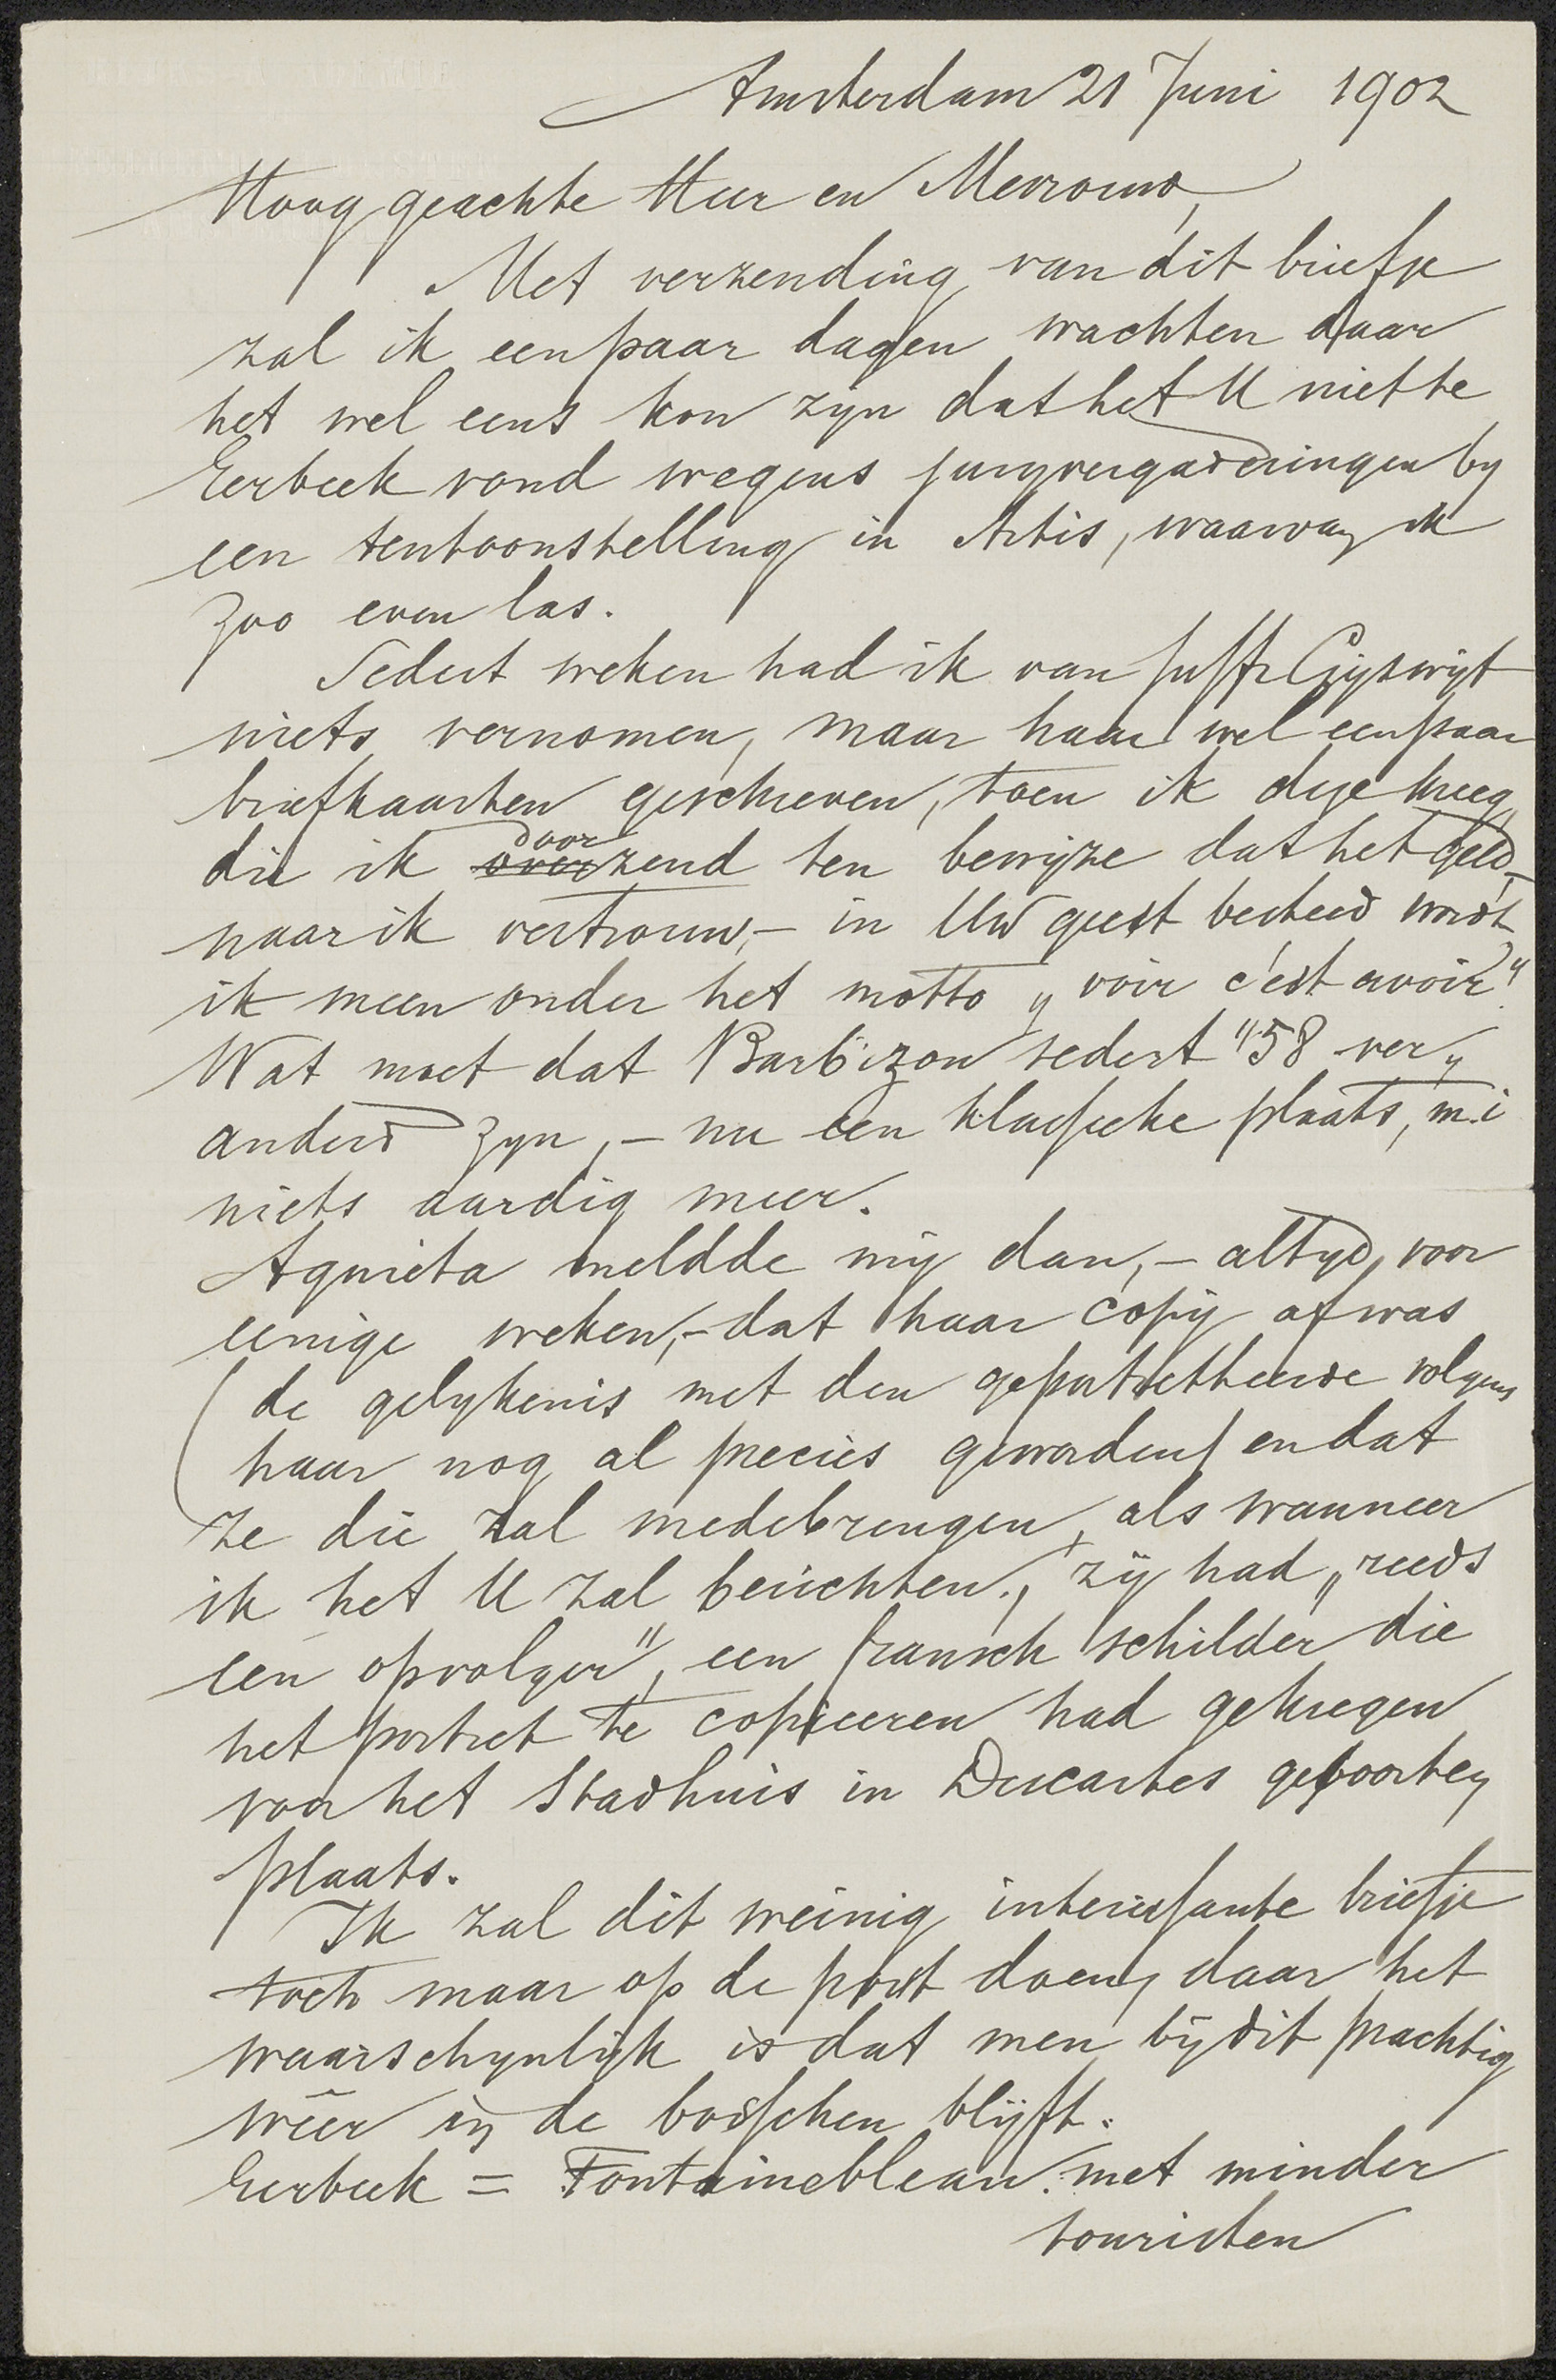 Amsterdam 21 Juni 1902
Hooggeachte Heer en Mevrouw,
Met verzending van dit briefje
zal ik een paar dagen wachten daar
het wel eens kon zijn dat het U niet te
Eerbeek vond wegens juryvergaderingen by
een tentoonstelling in Artis, waarvan ik
zoo even las.
Sedert weken had ik van Juffr Gijswijt
niets vernomen, maar haar wel een paar
briefkaarten geschreven, toen ik deze kreeg
die ik door overzend ten bewijze dat het geld –
naar ik vertrouw, – in Uw geest besteed wordt
ik meen onder het motto „voir c'est avoir".
Wat moet dat Barbizon sedert "58 ver„
anderd zyn, – nu een klassieke plaats, m.i
niets aardig meer.
Agnieta meldde mij dan, – altyd voor
eenige weken, – dat haar copij af was
(de gelykenis met den geportretteerde volgens
haar nog al precies geworden) en dat
ze die zal medebrengen, als wanneer
ik het U zal berichten., zij had „reeds
een opvolger", een fransch schilder die
het portret te copieeren had gekregen
voor het Stadhuis in Descartes geboorte„
plaats.
Ik zal dit weinig interessante briefje
toch maar op de post doen, daar het
waarschynlijk is dat men bij dit prachtig
wêer in de bosschen blijft.
Eerbeek = Fontainebleau. met minder
touristen